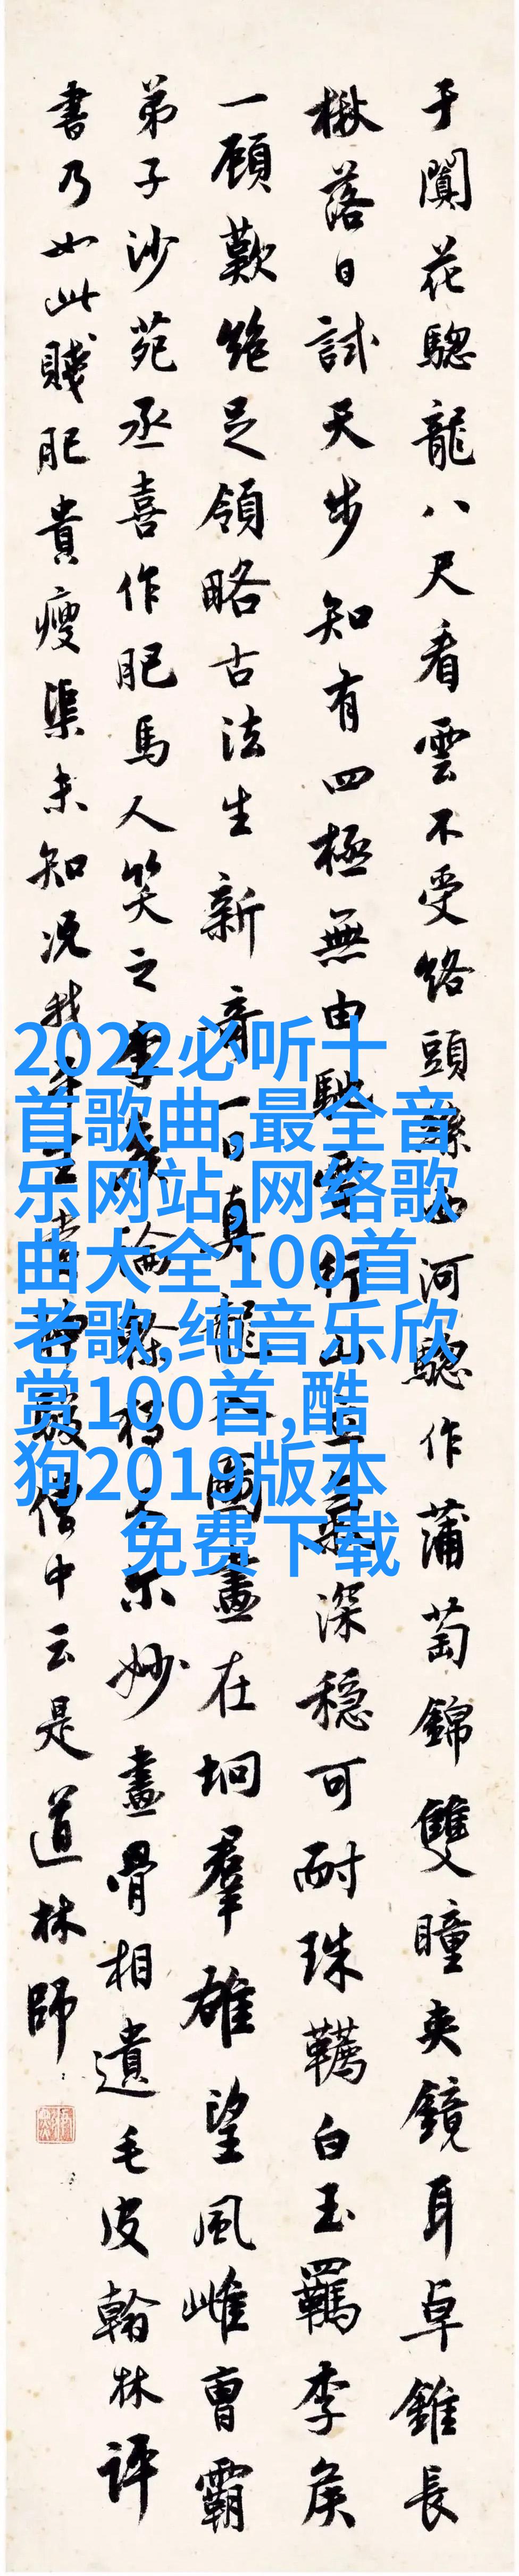 于闐花驄龍八尺看雲不受絡頭絲西河驄作蒲萄錦雙瞳夾鏡耳卓錐長
楸落日試天步知有四極無由馳電行山立氣深穩可耐珠韉白玉羈李侯
一顧歎絕足領略古法生新奇一日真龍入圖畫在坰羣雄望風雌曹霸
弟子沙苑丞喜作肥馬人笑之李侯論幹獨不爾妙畫骨相遺毛皮翰林評
書乃如此賤肥貴瘦渠未知况我平生賞神駿僧中云是道林師
2022必听十
首歌曲,最全音
乐网站,网络歌
曲大全100首
老歌,纯音乐欣
赏100首,酷
狗2019版本
免费下载